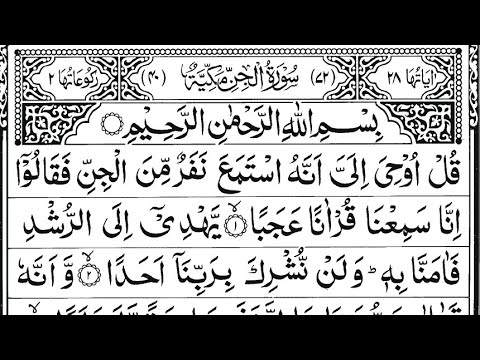 اٰیَاتُهَا ٢٨ (٧٢) سُوْرَةُ الْجِنِّ مَكِّیَّةٌ (٤٠) رُكُوْعَاتُهَا ٢
بِسْمِ اللّٰهِ الرَّحْمٰنِ الرَّحِیْمِ
قُلْ اُوْحِیَ اِلَیَّ اَنَّهُ اسْتَمَعَ نَفَرٌ مِّنَ الْجِنِّ فَقَالُوْۤا
اِنَّا سَمِعْنَا قُرْاٰنًا عَجَبًا ١ یَّهْدِیْۤ اِلَی الرُّشْدِ
فَاٰمَنَّا بِهٖ ؕ وَ لَنْ نُّشْرِكَ بِرَبِّنَاۤ اَحَدًا ٢ وَّ اَنَّهٗ